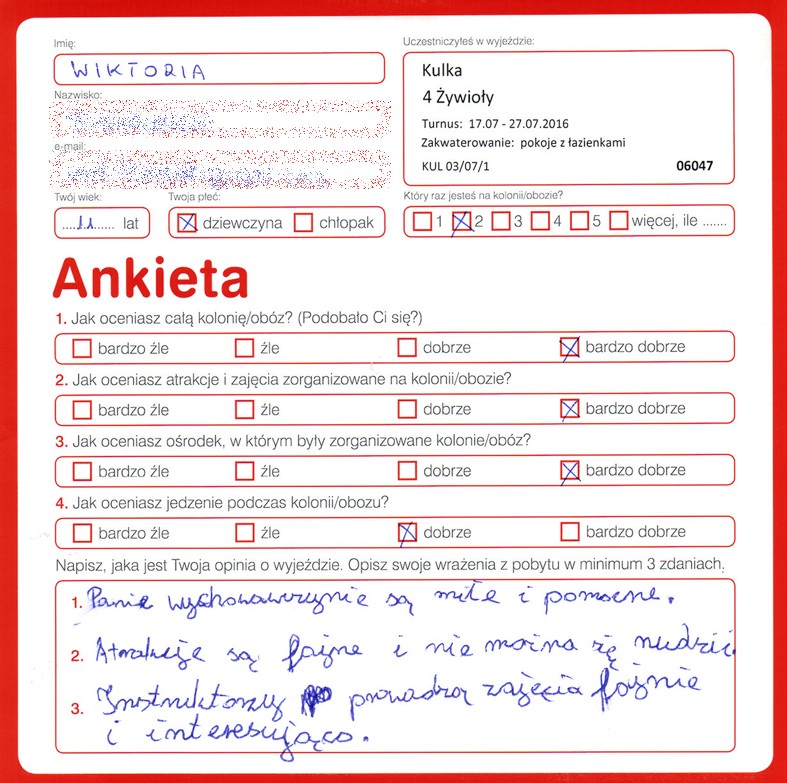 Imię:
WIKTORIA
Nazwisko:
e-mail:
Twój wiek:
....11...... lat
Twoja płeć:
dziewczyna chłopak
Uczestniczyłeś w wyjeździe:
Kulka
4 Żywioły
Turnus: 17.07 - 27.07.2016
Zakwaterowanie: pokoje z łazienkami
KUL 03/07/1 06047
Który raz jesteś na kolonii/obozie?
1 2 3 4 5 więcej, ile .......
Ankieta
1. Jak oceniasz całą kolonię/obóz? (Podobało Ci się?)
bardzo źle źle dobrze bardzo dobrze
2. Jak oceniasz atrakcje i zajęcia zorganizowane na kolonii/obozie?
bardzo źle źle dobrze bardzo dobrze
3. Jak oceniasz ośrodek, w którym były zorganizowane kolonie/obóz?
bardzo źle źle dobrze bardzo dobrze
4. Jak oceniasz jedzenie podczas kolonii/obozu?
bardzo źle źle dobrze bardzo dobrze
Napisz, jaka jest Twoja opinia o wyjeździe. Opisz swoje wrażenia z pobytu w minimum 3 zdaniach.
1. Panie wychowawczynie są miłe i pomocne.
2. Atrakcje są fajne i nie można się nudzić
3. Instruktorzy prowadzą zajęcia fajnie
i interesująco.